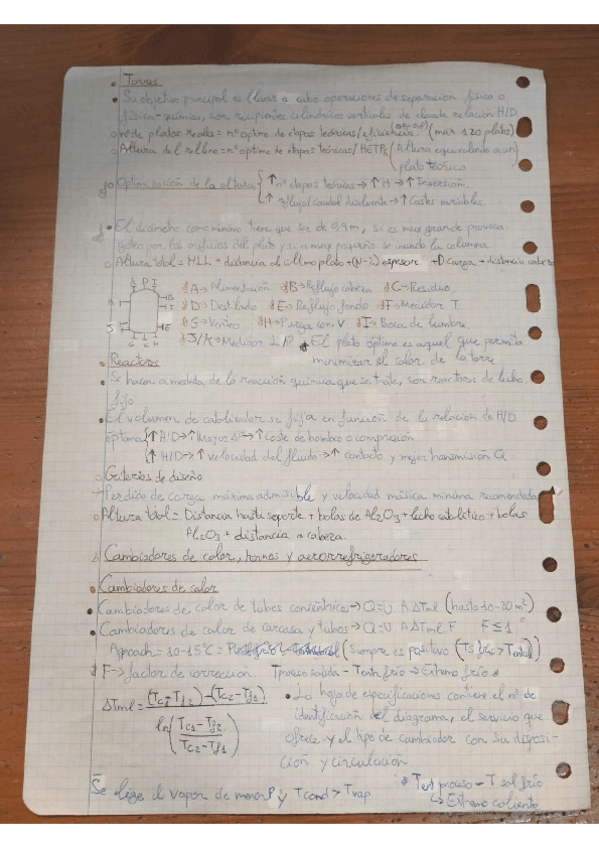 • Torres
• Su objetivo principal es llevar a cabo operaciones de separación física o
física-química, son recipientes cilíndricos verticales de elevada relación H/D.
o nº de platos reales = nº optimo de etapas teóricas/eficiencia (max 120 platos)
o Altura del relleno = nº optimo de etapas teóricas/HETP (Altura equivalente a un
plato teórico
Optimización de la altura { ↑ nº etapas teóricas → ↑ H → ↑ Inversión.
↑ reflujo/caudal disolvente → ↑ Costes variables.
• El diámetro como mínimo tiene que ser de 0,9 m, si es muy grande provoca
goteo por los orificios del plato y si es muy pequeño se inunda la columna
o Altura total = HLL + distancia al último plato + (N-2) espesor + D carga + distancia cabeza
A → Alimentación B → Reflujo cabeza C → Residuo
D → Destilado E → Reflujo fondo F → Medidor T.
G → Venteo H → Purga con V I → Boca de hombre.
J/K → Medidor ΔP • El plato óptimo es aquel que permita
minimizar el calor de la torre
• Reactores
• Se hacen a medida de la reacción química que se trate, son reactores de lecho
fijo
• El volumen de catalizador se fija en función de la relación de H/D
óptima { ↑ H/D → ↑ Mayor ΔP → ↑ Coste de bombeo o compresión
↑ H/D → ↑ velocidad del fluido → ↑ contacto y mejor transmisión Q
o Criterios de diseño
→ Perdida de carga máxima admisible y velocidad másica mínima recomendada
o Altura total = Distancia hasta soporte + bolas de Al2O3 + lecho catalítico + bolas
Al2O3 + distancia a cabeza.
Cambiadores de calor, hornos y aerorrefrigeradores
• Cambiadores de calor
• Cambiadores de calor de tubos concéntricos → Q = U A ΔTml (hasta 10-20 m²)
• Cambiadores de calor de carcasa y tubos → Q = U A ΔTml F F ≤ 1
Approach = 10-15 °C = (siempre es positivo
F → factor de corrección. T proceso salida - Tent frío → Extremo frío
ΔTml = (Tc1-Tf2)-(Tc2-Tf1)
ln (Tc1-Tf2
Tc2-Tf1)
• La hoja de especificaciones contiene el nº de
identificación del diagrama, el servicio que
ofrece y el tipo de cambiador con su disposi-
ción y circulación
Se elige el vapor de menor P y Tcond > Tvap
• Tent proceso - T sal frío
↳ Extremo caliente